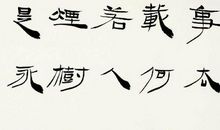 事
載何
若人
煙樹
是永